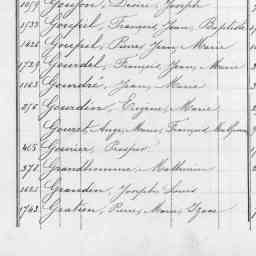 1079 Goujon, Désiré, Joseph
1533 Goupel, François, Jean, Baptiste
1426 Goupel, Pierre, Jean, Marie
1729 Gourdel, François, Jean, Marie
1163 Gourdré, Jean, Marie
276 Gourdin, Eugène, Marie
Gouret, Ange, Marie, François
405 Gouvier, Prosper
378 Grandhomme, Mathurin
1625 Grandin, Joseph, Louis
1743 Gratien, Pierre, Marie,